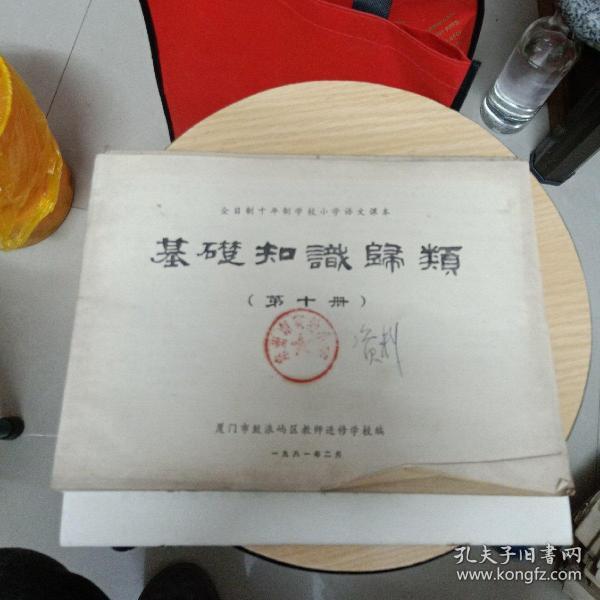 全日制十年制学校小学语文课本
基礎知識歸類
（第十册）
资料
厦门市鼓浪屿区教师进修学校编
一九八一年二月
孔夫子旧书网
www.kongfz.com